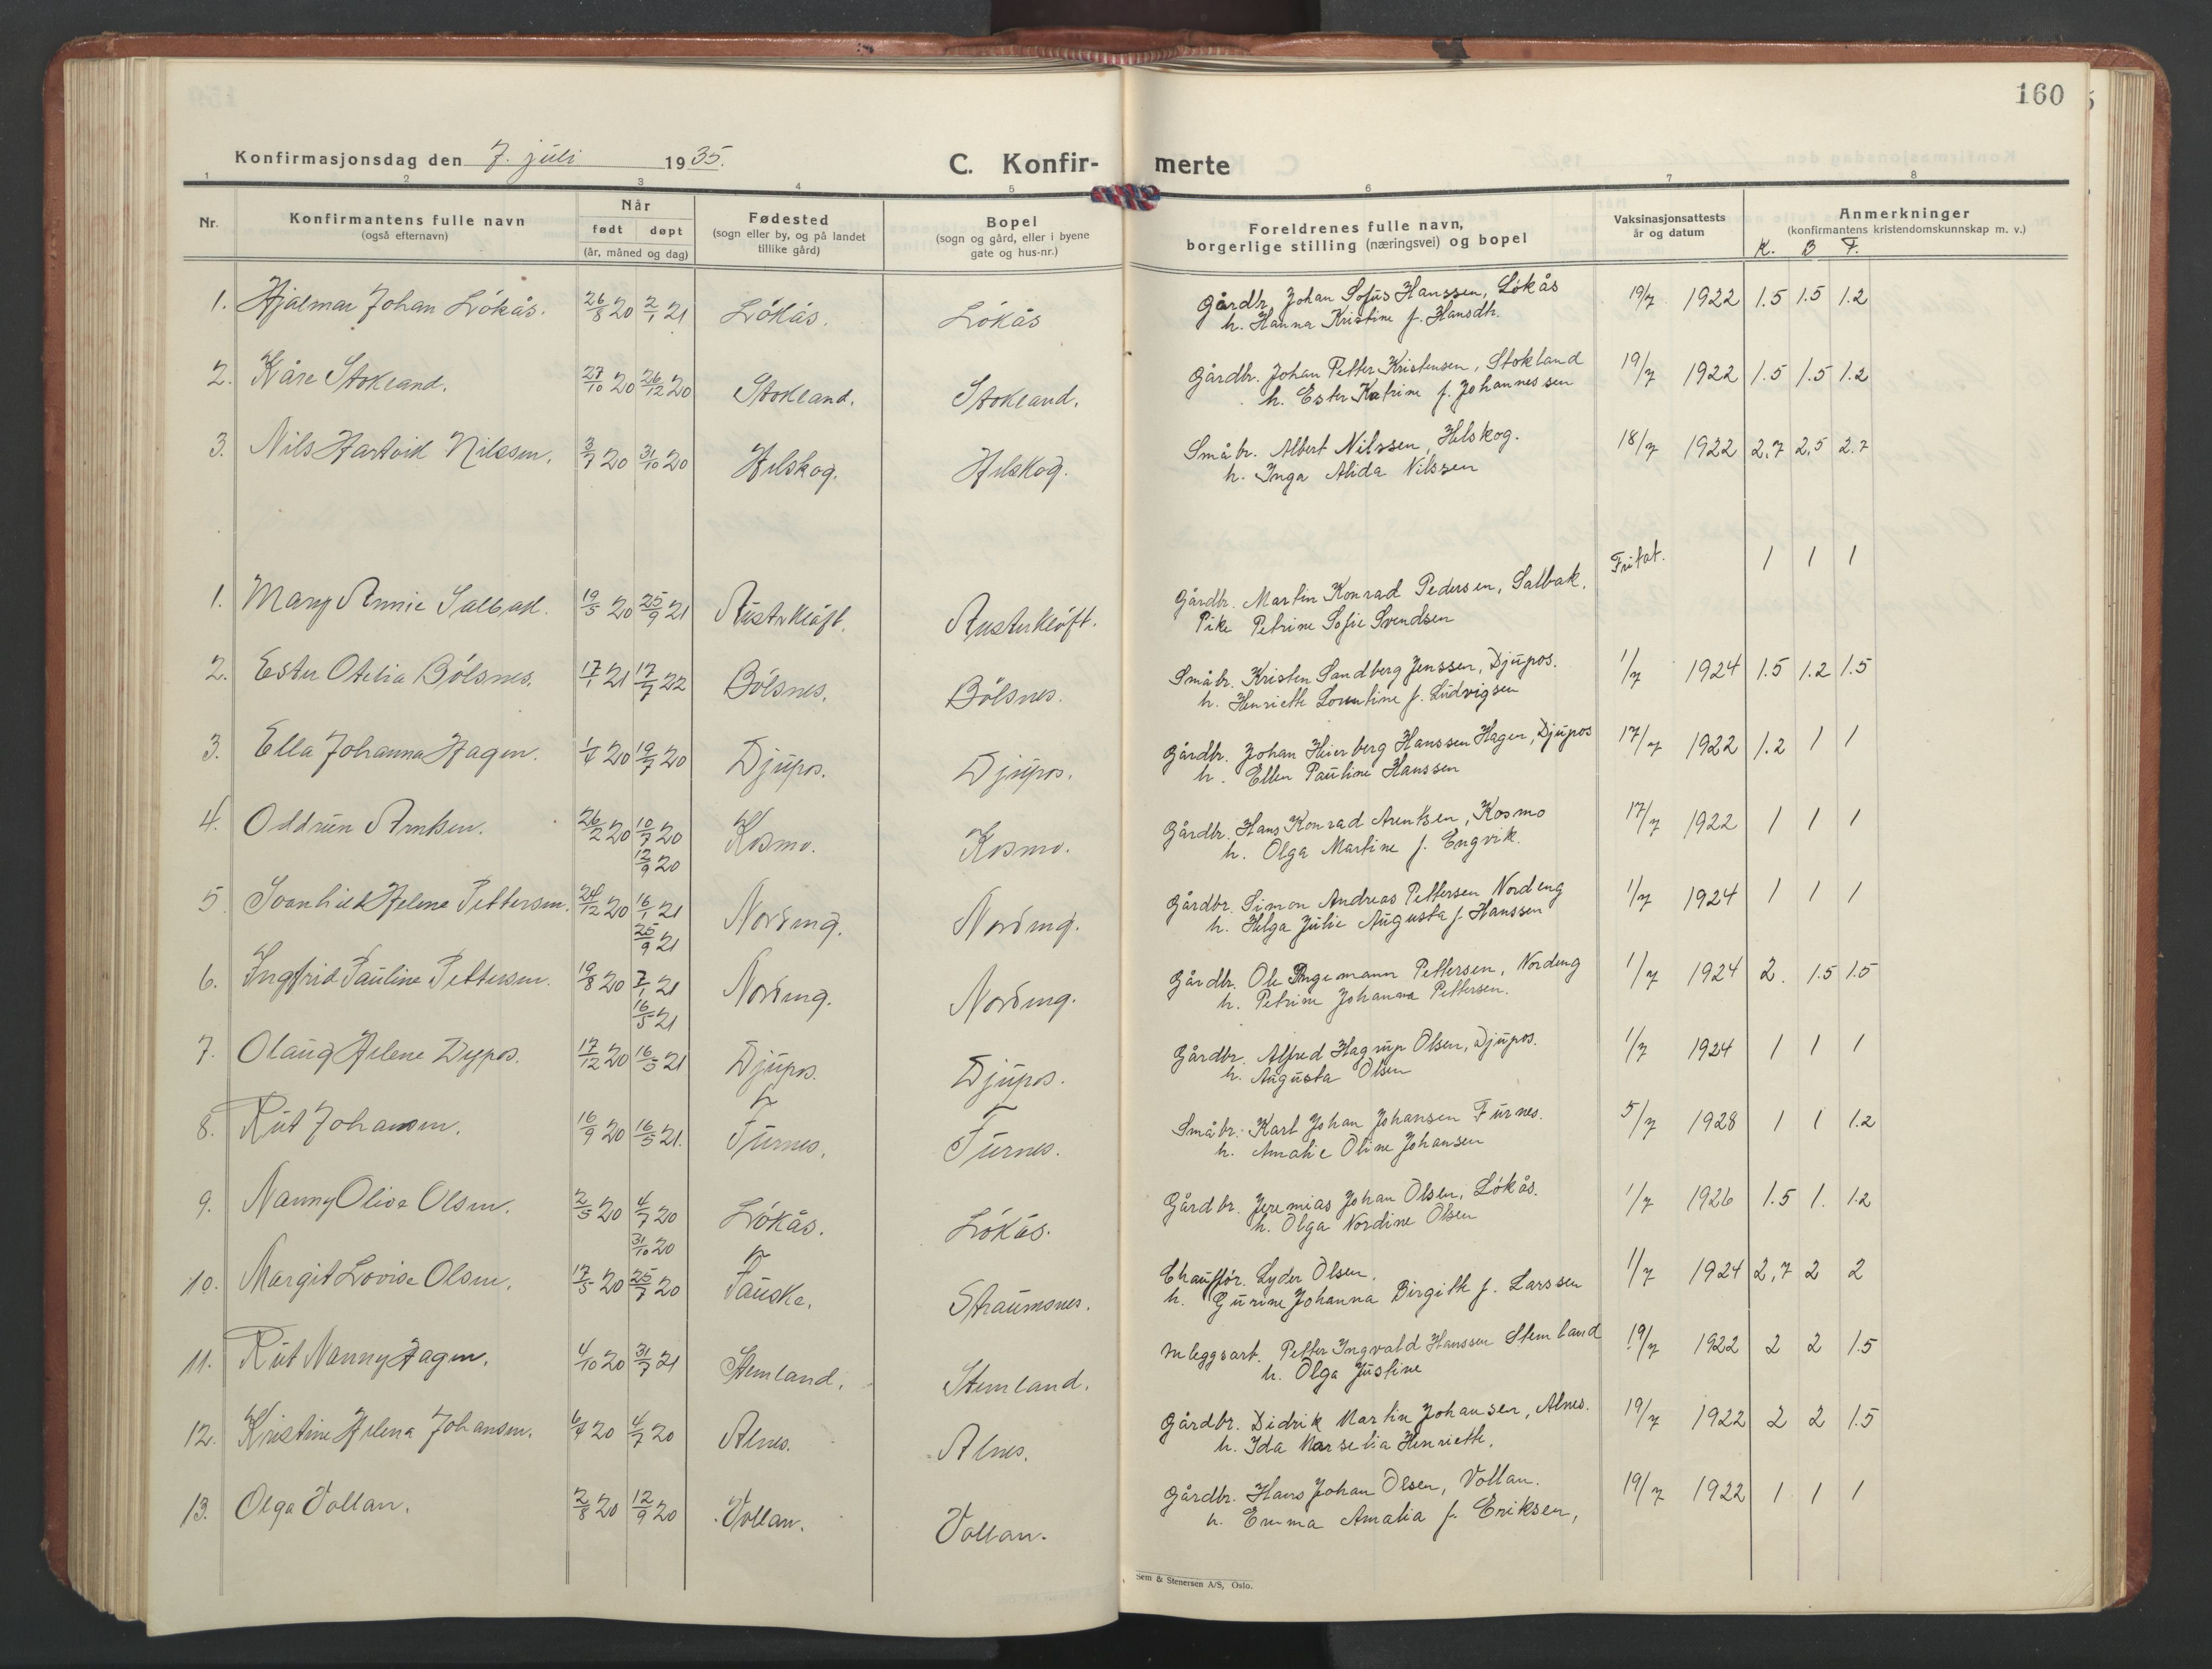 160
Konfirmasjonsdag den 7. juli 1935.
C. Konfir- merte
1 2 3 4 5 6 7 8
Nr. Konfirmantens fulle navn (også efternavn) Når født døpt (år, måned og dag) Fødested (sogn eller by, og på landet tillike gård) Bopel (sogn og gård, eller i byene gate og hus-nr.) Foreldrenes fulle navn, borgerlige stilling (næringsvei) og bopel Vaksinasjonsattests år og datum Anmerkninger (konfirmantens kristendomskunnskap m. v.)
K. B F.
1. Hjalmar Johan Løkås. 26/8 20 2/1 21 Løkås. Løkås Gårdbr. Johan Sofus Hanssen, Løkås 19/7 1922 1.5 1.5 1.2
h. Hanna Kristine f. Hansdtr.
2. Kåre Stokland. 27/10 20 26/12 20 Stokland. Stokland. Gårdbr. Johan Petter Kristensen, Stokland 19/7 1922 1.5 1.5 1.2
h. Ester Katrine f. Johannessen
3. Nils Hartvik Nilssen. 3/7 20 31/10 20 Helskog. Helskog. Småbr. Albert Nilssen, Helskog. 18/7 1922 2,7 2,5 2.7
h. Inga Alida Nilssen
1. Mary Annie Salbak. 19/5 20 25/9 21 Austerkløft. Austerkløft. Gårdbr. Martin Konrad Pedersen, Salbak. Fritat. 1 1 1
Pike Petrine Sofie Svendsen
2. Ester Otelia Bölsnes. 17/1 21 17/7 22 Bölsnes. Bölsnes. Småbr. Kristen Sandberg Jenssen, Djupos. 1/7 1924 1.5 1.2 1.5
h. Henriette Lorentine f. Ludvigsen
3. Ella Johanna Hagen. 1/4 20 19/7 20 Djupos. Djupos. Gårdbr. Johan Heierberg Hanssen Hagen, Djupos 17/7 1922 1.2 1 1
h. Ellen Pauline Hanssen
4. Oddrun Arntsen. 26/2 20 10/7 20 Kosmo. Kosmo. Gårdbr. Hans Konrad Arentsen, Kosmo 17/7 1922 1 1 1
12/9 20 h. Olga Martine f. Engvik.
5. Svanhild Helene Pettersen. 24/12 20 16/1 21 Nordeng. Nordeng. Gårdbr. Simon Andreas Pettersen Nordeng 1/7 1924 1 1 1
25/9 21 h. Helga Julie Augusta f. Hanssen
6. Ingfrid Pauline Pettersen. 19/8 20 2/1 21 Nordeng. Nordeng. Gårdbr. Ole Ingemann Pettersen, Nordeng 1/7 1924 2. 1.5 1.5
16/5 21 h. Petrine Johanna Pettersen.
7. Olaug Helene Dypos. 17/12 20 16/5 21 Djupos. Djupos. Gårdbr. Alfred Hagrup Olsen, Djupos. 1/7 1924 1 1 1
h. Augusta Olsen
8. Rut Johansen. 16/9 20 16/5 21. Furnes. Furnes. Småbr. Karl Johan Johansen Furnes. 5/7 1928 1 1 1.2
h. Amalie Oline Johansen
9. Nanny Olise Olsen. 2/5 20 4/7 20 Løkås. Løkås. Gårdbr. Jeremias Johan Olsen, Løkås. 1/7 1926 1.5 1. 1.2
31/10 20 h. Olga Nordine Olsen
10. Margit Lovise Olsen. 17/5 20 25/7 20 Fauske. Straumsnes. Chauffør. Lyder Olsen. 1/7 1924 2,7 2 2
h. Gurine Johanna Birgith f. Larssen
11. Rut Nanny Hagen. 4/10 20 31/7 21 Stemland. Stemland. Anleggsarb. Petter Ingvald Hanssen Stemland 19/7 1922 2 2 1.5
h. Olga Justine
12. Kristine Helena Johansen. 6/4 20 4/7 20 Alnes. Alnes. Gårdbr. Didrik Martin Johansen, Alnes. 19/7 1922 2 2 1.5
h. Ida Marselia Henriette.
13. Olga Vollan. 2/8 20 12/9 20 Vollan. Vollan. Gårdbr. Hans Johan Olsen, Vollan. 19/7 1922 1 1 1
h. Emma Amalia f. Eriksen,
Sem & Stenersen A/S, Oslo.